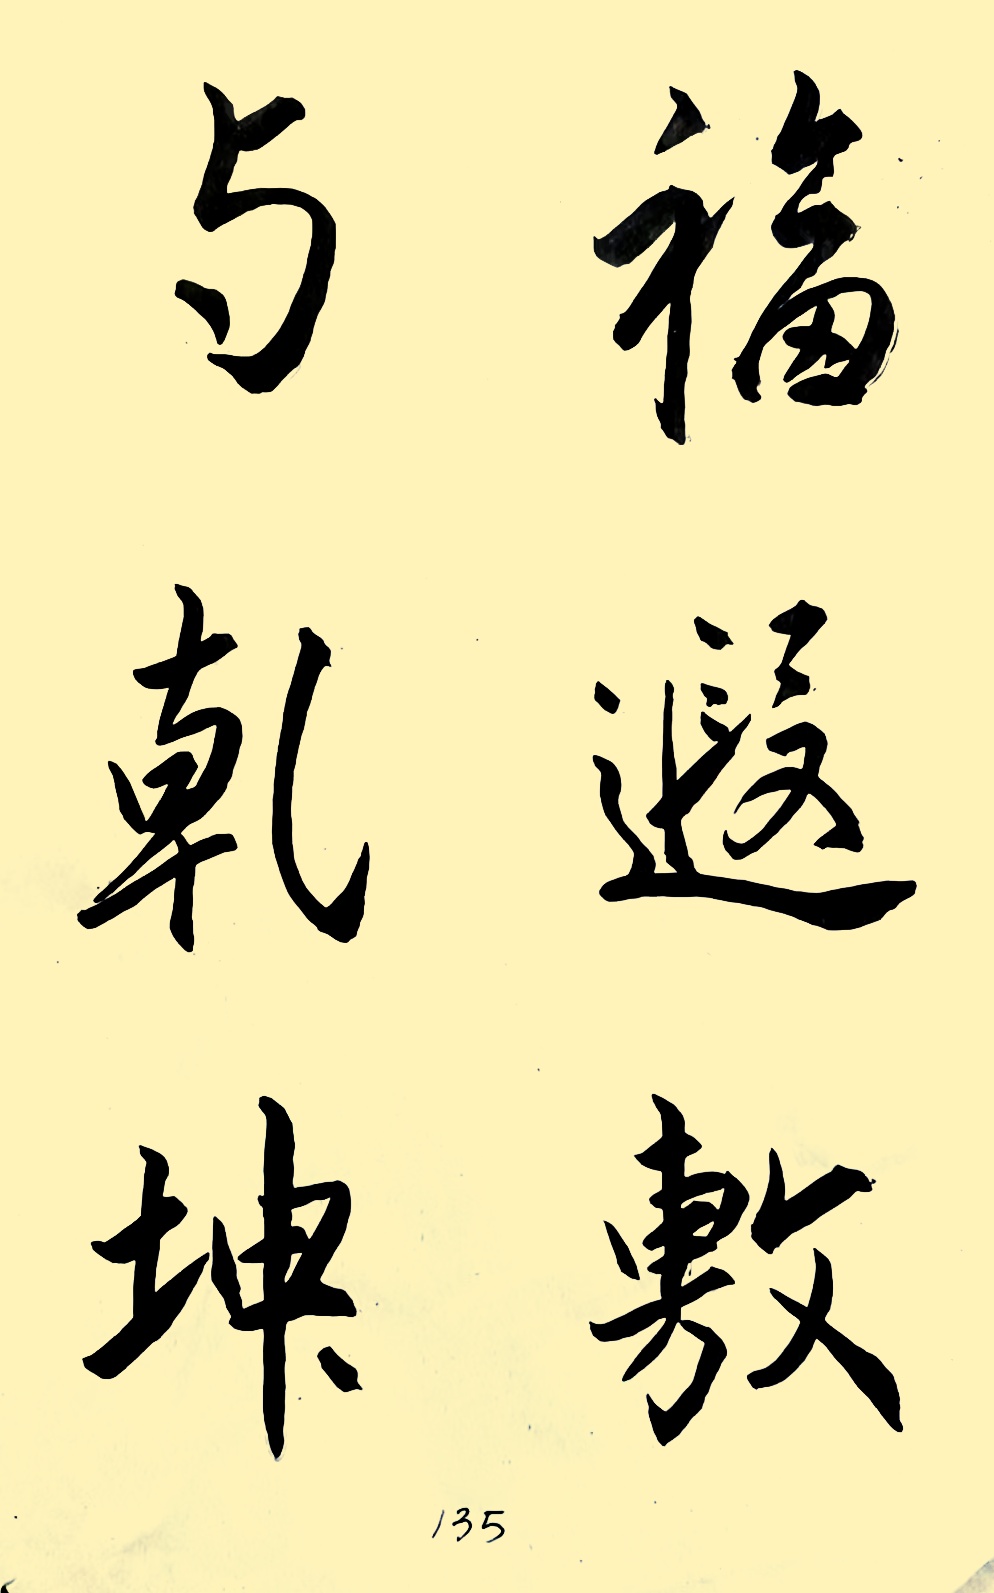 福遐敷
与乾坤
135